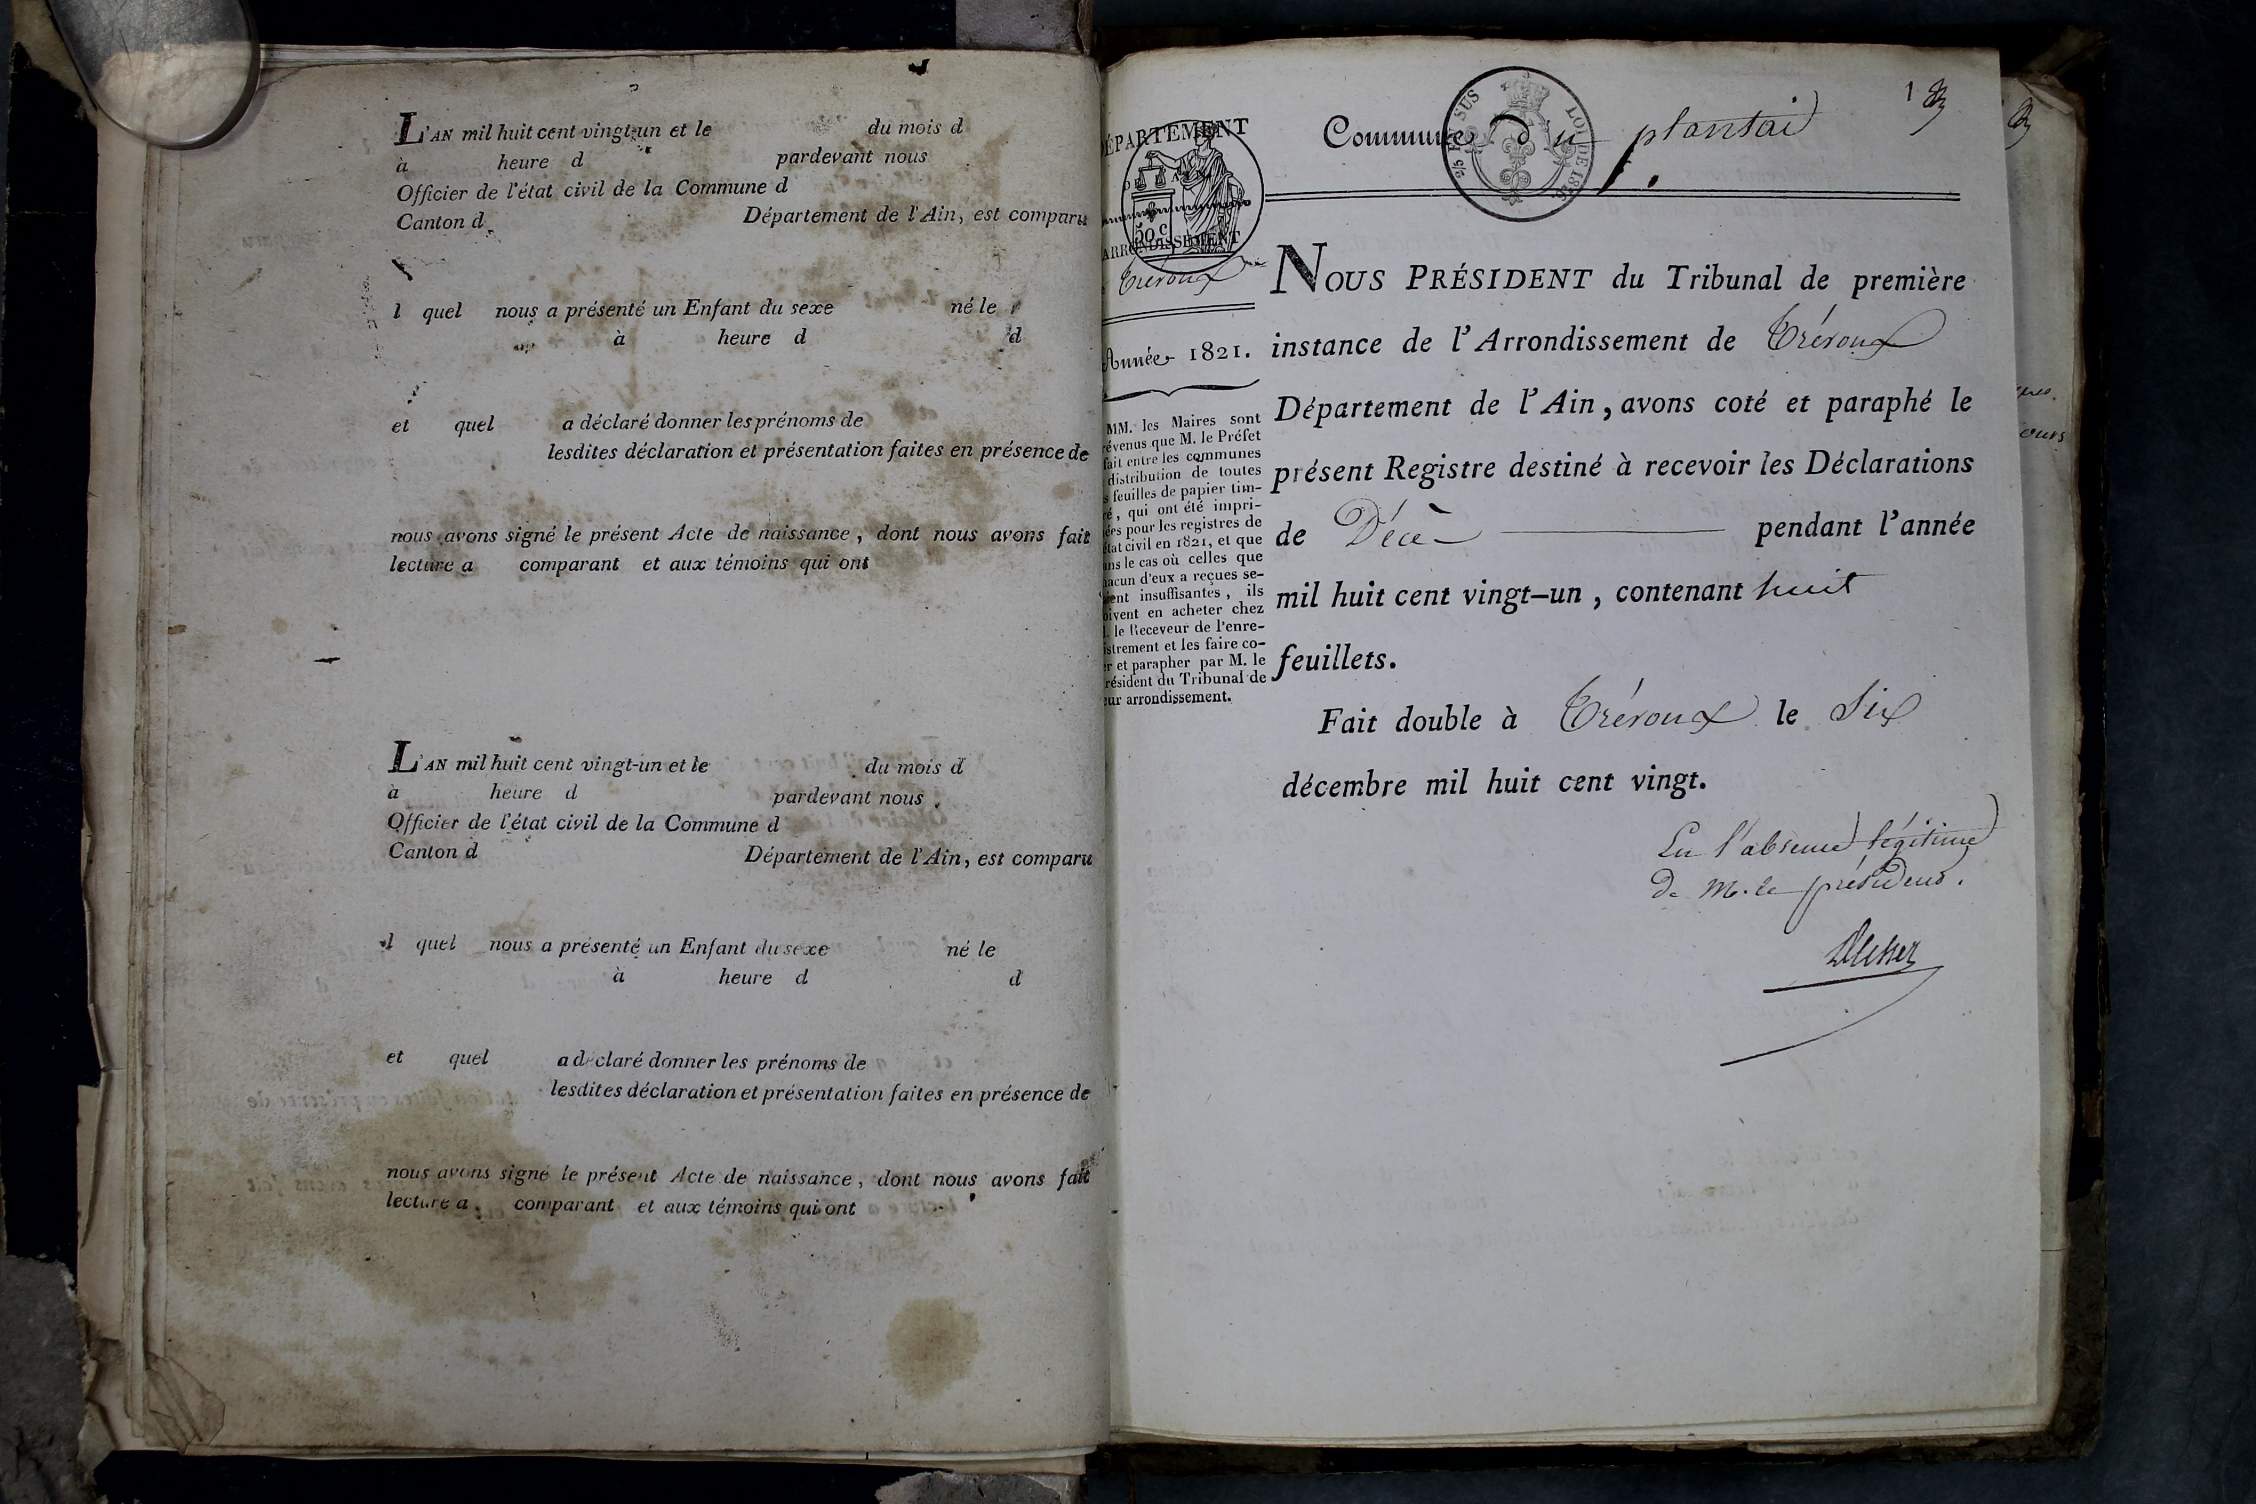 L'AN mil huit cent vingt-un et le du mois d
à heure d pardevant nous
Officier de l'état civil de la Commune d
Canton d Département de l'Ain, est comparu
l quel nous a présenté un Enfant du sexe né le
à heure d d
et quel a déclaré donner les prénoms de
lesdites déclaration et présentation faites en présence de
nous avons signé le présent Acte de naissance, dont nous avons fait
lecture a comparant et aux témoins qui ont
L'AN mil huit cent vingt-un et le du mois d
à heure d pardevant nous
Officier de l'état civil de la Commune d
Canton d Département de l'Ain, est comparu
l quel nous a présenté un Enfant du sexe né le
à heure d d
et quel a déclaré donner les prénoms de
lesdites déclaration et présentation faites en présence de
nous avons signé le présent Acte de naissance, dont nous avons fait
lecture a comparant et aux témoins qui ont
DÉPARTEMENT
50 c
ARRONDISSEMENT
Trévoux
Année 1821.
MM. les Maires sont
révenus que M. le Préfet
fait entre les communes
distribution de toutes
s feuilles de papier tim-
ré, qui ont été impri-
ées pour les registres de
état civil en 1821, et que
ans le cas où celles que
hacun d'eux a reçues se-
aient insuffisantes, ils
oivent en acheter chez
. le Receveur de l'enre-
istrement et les faire co-
er et parapher par M. le
résident du Tribunal de
eur arrondissement.
1
Commune du plantai
EN SUS
LOI DE
NOUS PRÉSIDENT du Tribunal de première
instance de l'Arrondissement de Trévoux
Département de l'Ain, avons coté et paraphé le
présent Registre destiné à recevoir les Déclarations
de Décè pendant l'année
mil huit cent vingt-un, contenant huit
feuillets.
Fait double à Trévoux le Six
décembre mil huit cent vingt.
En l'absence légitime
De M. le président.